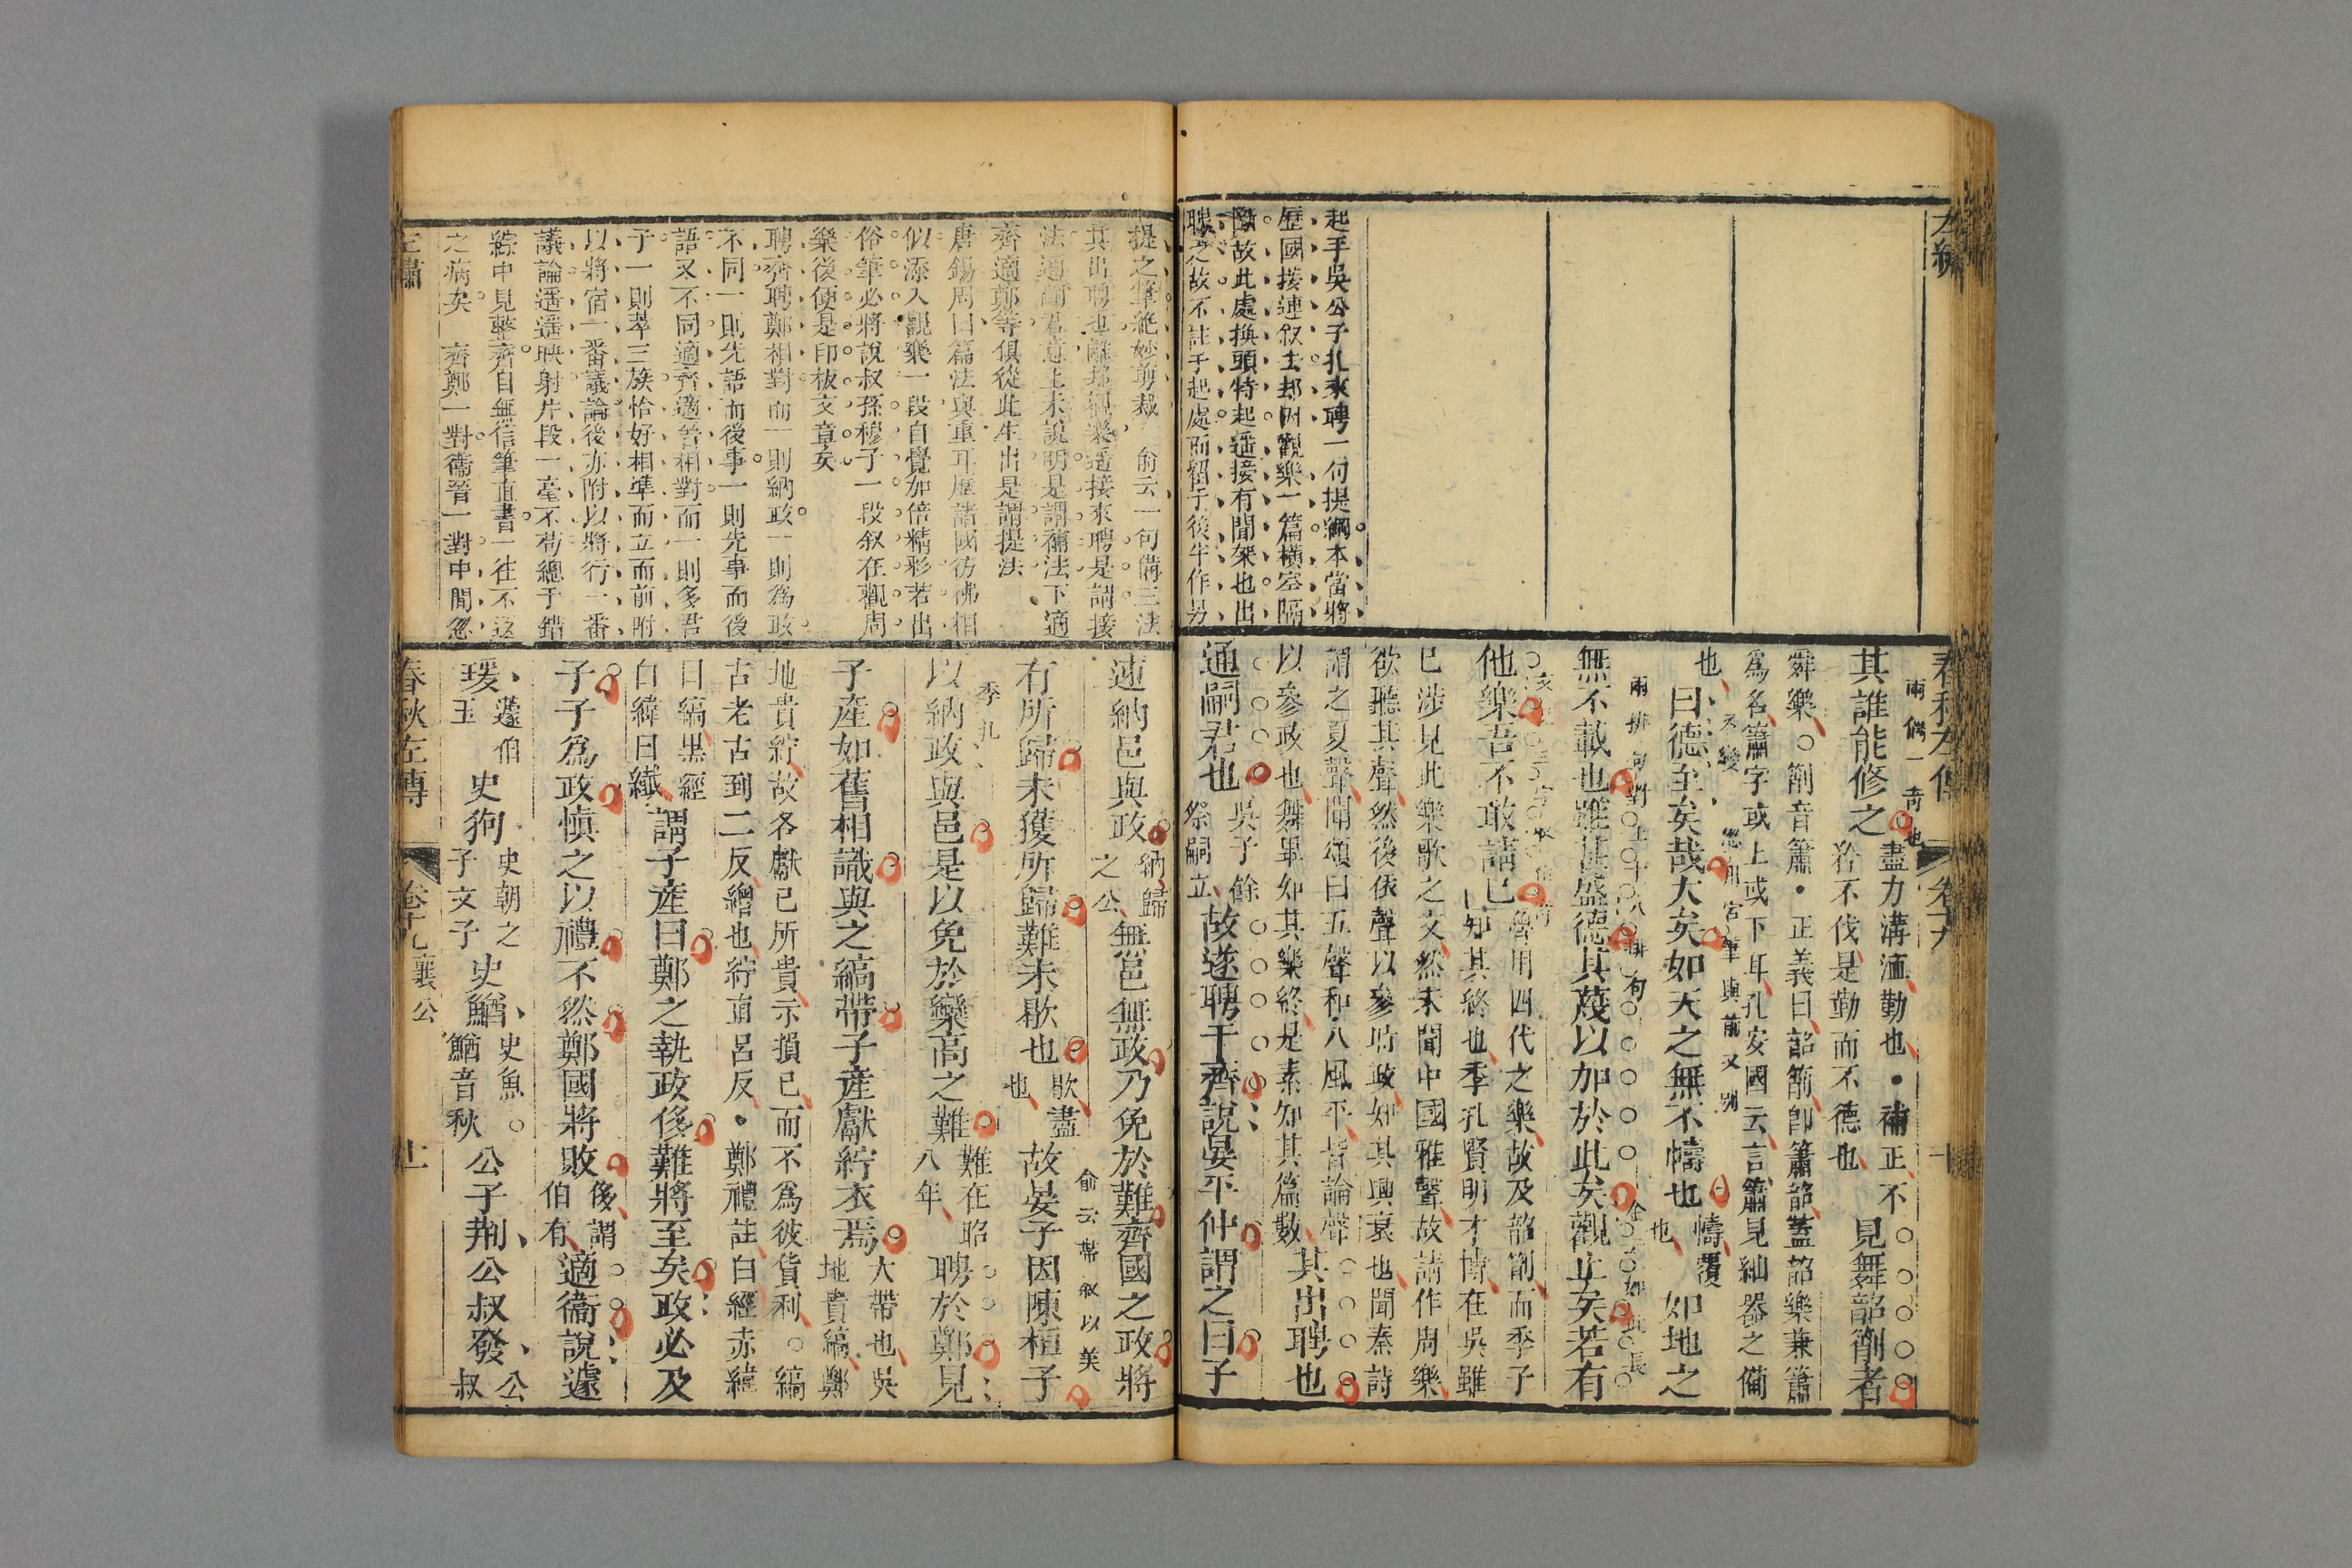 左繡
起手吳公子札來聘一句提綱本當將
歷國接連叙去却因觀樂一篇橫空隔
斷故此處換頭特起遥接有間架也出
聘之故不註于起處而留于後半作另
春秋左傳
卷十九
十
兩偶一奇也
其誰能修之
盡力溝洫勤也・補正不
矜不伐是勤而不德也
見舞韶箾者
舜樂○箾音簫・正義曰韶箾卽簫韶葢韶樂兼簫
爲名簫字或上或下耳孔安國云言簫見細器之備
也
曰德至矣哉大矣如天之無不幬也
幬覆
也
如地之
兩排句對上十八排句
無不載也雖甚盛德其蔑以加於此矣觀止矣若有
他樂吾不敢請已
魯用四代之樂故及韶箾而季子
知其終也季札賢明才博在吳雖
已涉見此樂歌之文然未聞中國雅聲故請作周樂
欲聽其聲然後依聲以參時政知其興衰也聞秦詩
謂之夏聲聞頌曰五聲和八風平皆論聲
以參政也舞畢知其樂終是素知其篇數
其出聘也
通嗣君也
吳子餘
祭嗣立
故遂聘于齊說晏平仲謂之曰子
提之筆絶妙剪裁 俞云一句備三法
其出聘也離却觀樂遥接來聘是謂接
法通嗣君意上未說明是謂補法下適
齊適鄭等俱從此生出是謂提法
唐錫周曰篇法與重耳歷諸國彷彿相
似添入觀樂一段自覺加倍精彩若出
俗筆必將說叔孫穆子一段叙在觀周
樂後便是印板文章矣
聘齊聘鄭相對而一則納政一則爲政
不同一則先語而後事一則先事而後
語又不同適齊適晉相對而一則多君
子一則萃三族恰好相準而立而前附
以將宿一番議論後亦附以將行一番
議論遥遥映射片段一毫不苟總于錯
綜中見整齊自無信筆直書一往不返
之病矣 齊鄭一對衛晉一對中間忽
速納邑與政
納歸
之公
無邑無政乃免於難齊國之政將
有所歸未獲所歸難未歇也
歇盡
也
故晏子因陳桓子
俞云帶叙以美
季札
以納政與邑是以免於欒高之難
難在昭
八年
聘於鄭見
子產如舊相識與之縞帶子產獻紵衣焉
大帶也吳
地貴縞鄭
地貴紵故各獻已所貴示損已而不爲彼貨利○縞
古老古到二反繒也紵直呂反・鄭禮註白經赤緯
曰縞黑經
白緯曰纎
謂子產曰鄭之執政侈難將至矣政必及
子子爲政愼之以禮不然鄭國將敗
侈謂
伯有
適衞說蘧
瑗
蘧伯
玉
史狗
史朝之
子文子
史鰌
史魚○
鰌音秋
公子荆公叔發
公
叔
左繡
春秋左傳
卷十九襄公
十一